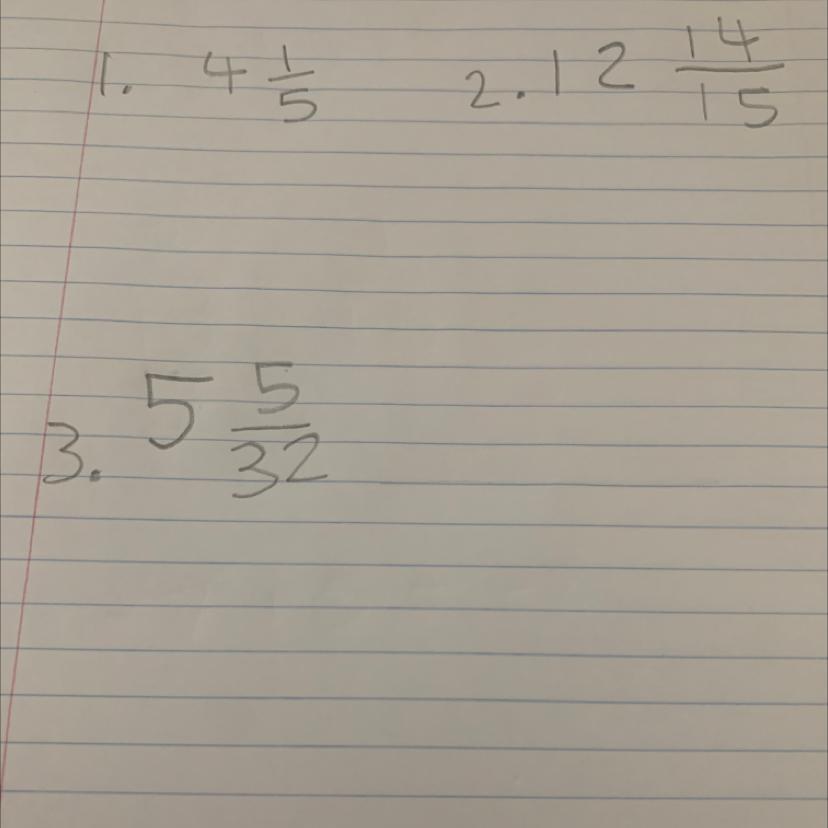 1. 4 1/5 2. 12 14/15
3. 5 5/32